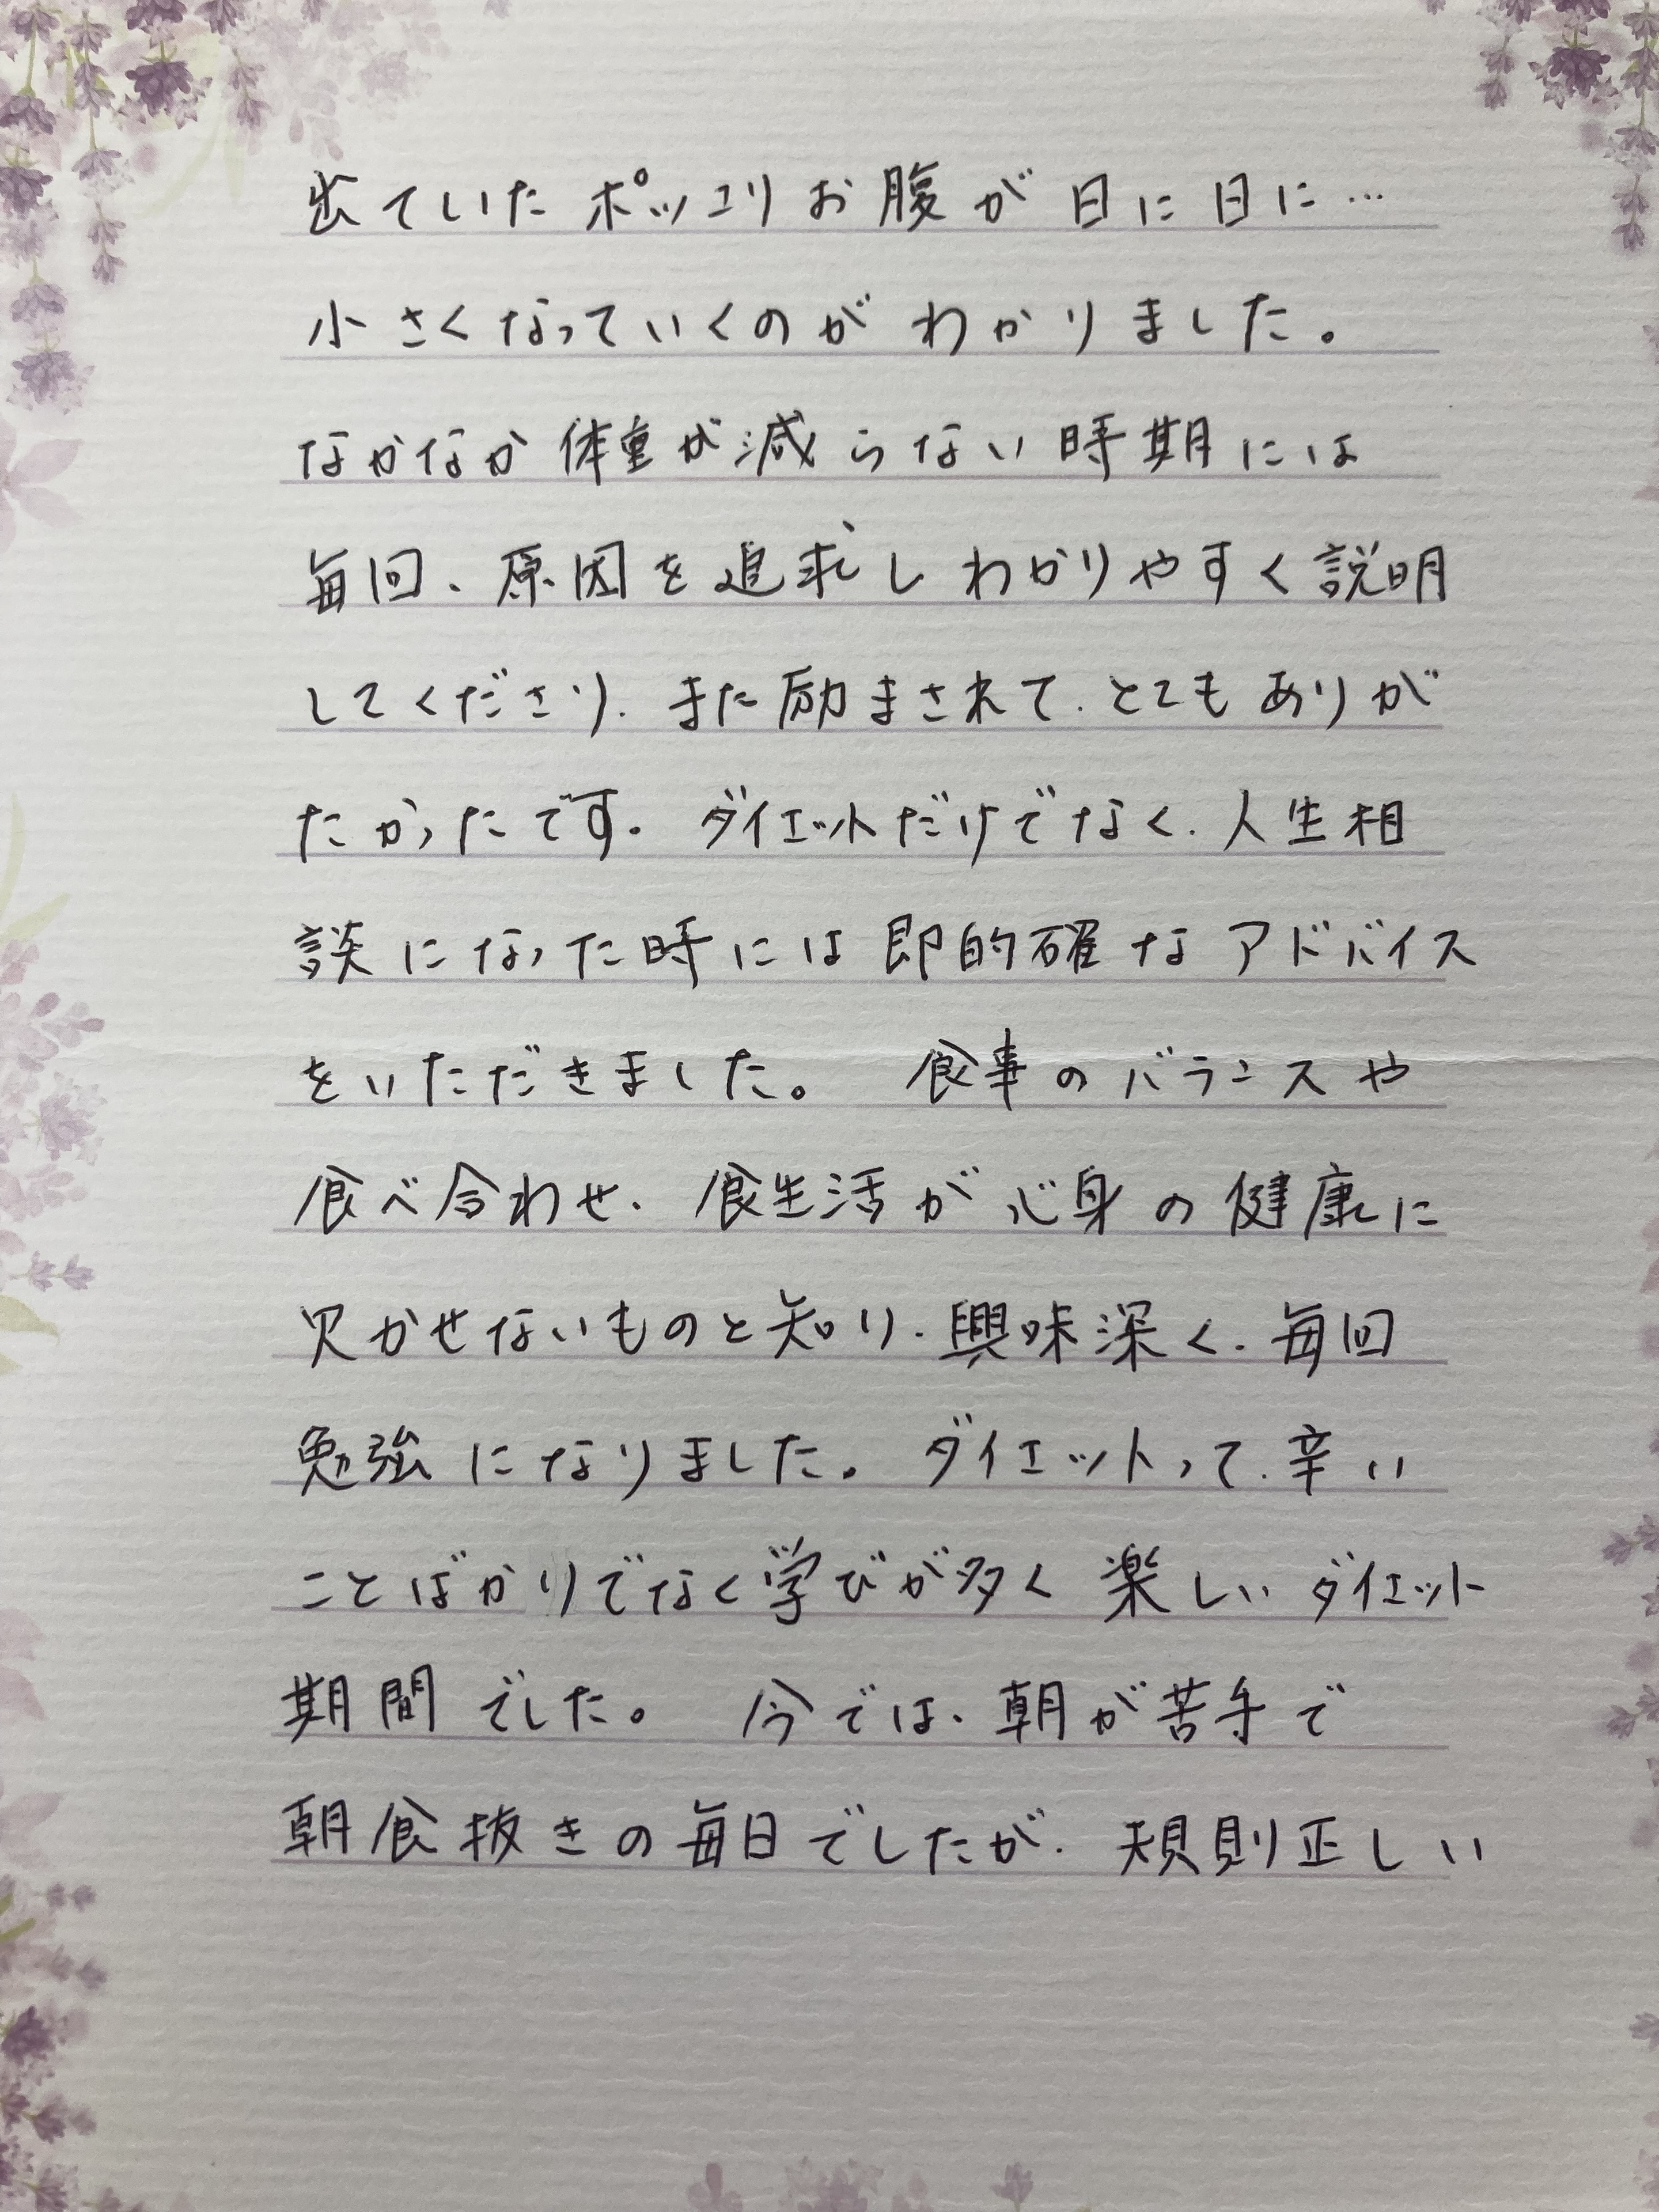 出ていたポッコリお腹が日に日に…
小さくなっていくのがわかりました。
なかなか体重が減らない時期には
毎回、原因を追求しわかりやすく説明
してくださり、また励まされて、とてもありが
たかったです。ダイエットだけでなく、人生相
談になった時には即的確なアドバイス
をいただきました。 食事のバランスや
食べ合わせ、食生活が心身の健康に
欠かせないものと知り、興味深く、毎回
勉強になりました。ダイエットって、辛い
ことばかりでなく学びが多く楽しいダイエット
期間でした。 今では、朝が苦手で
朝食抜きの毎日でしたが、規則正しい